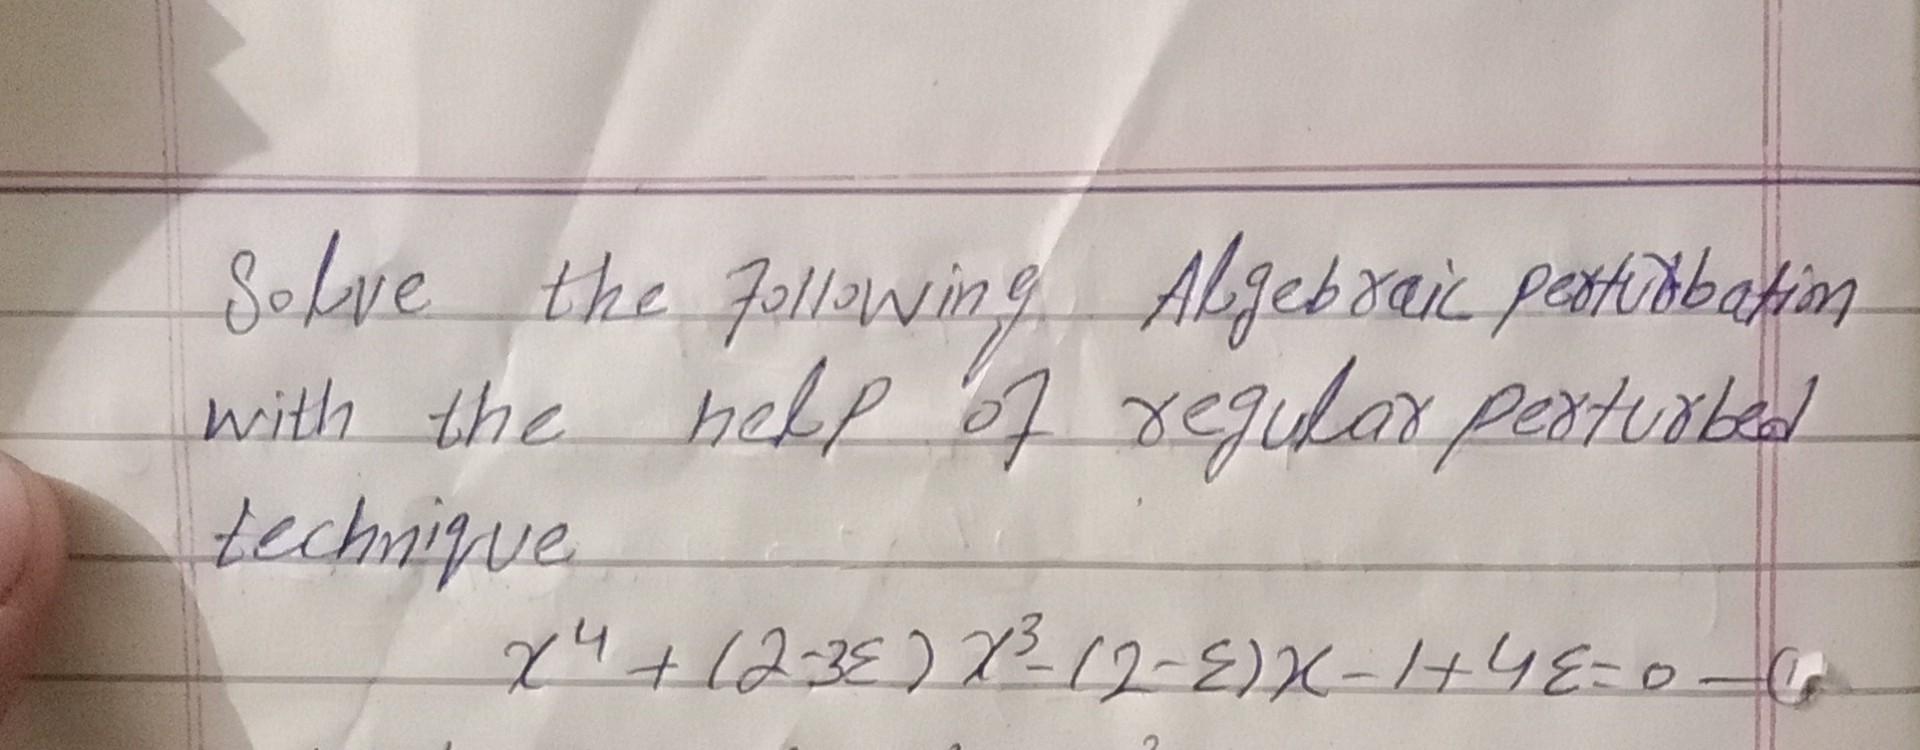 Solve the following Algebraic perturbation
with the help of regular perturbed
technique
x⁴ + (2-3ε) x³ - (2-ε)x - 1 + 4ε = 0 — (1)